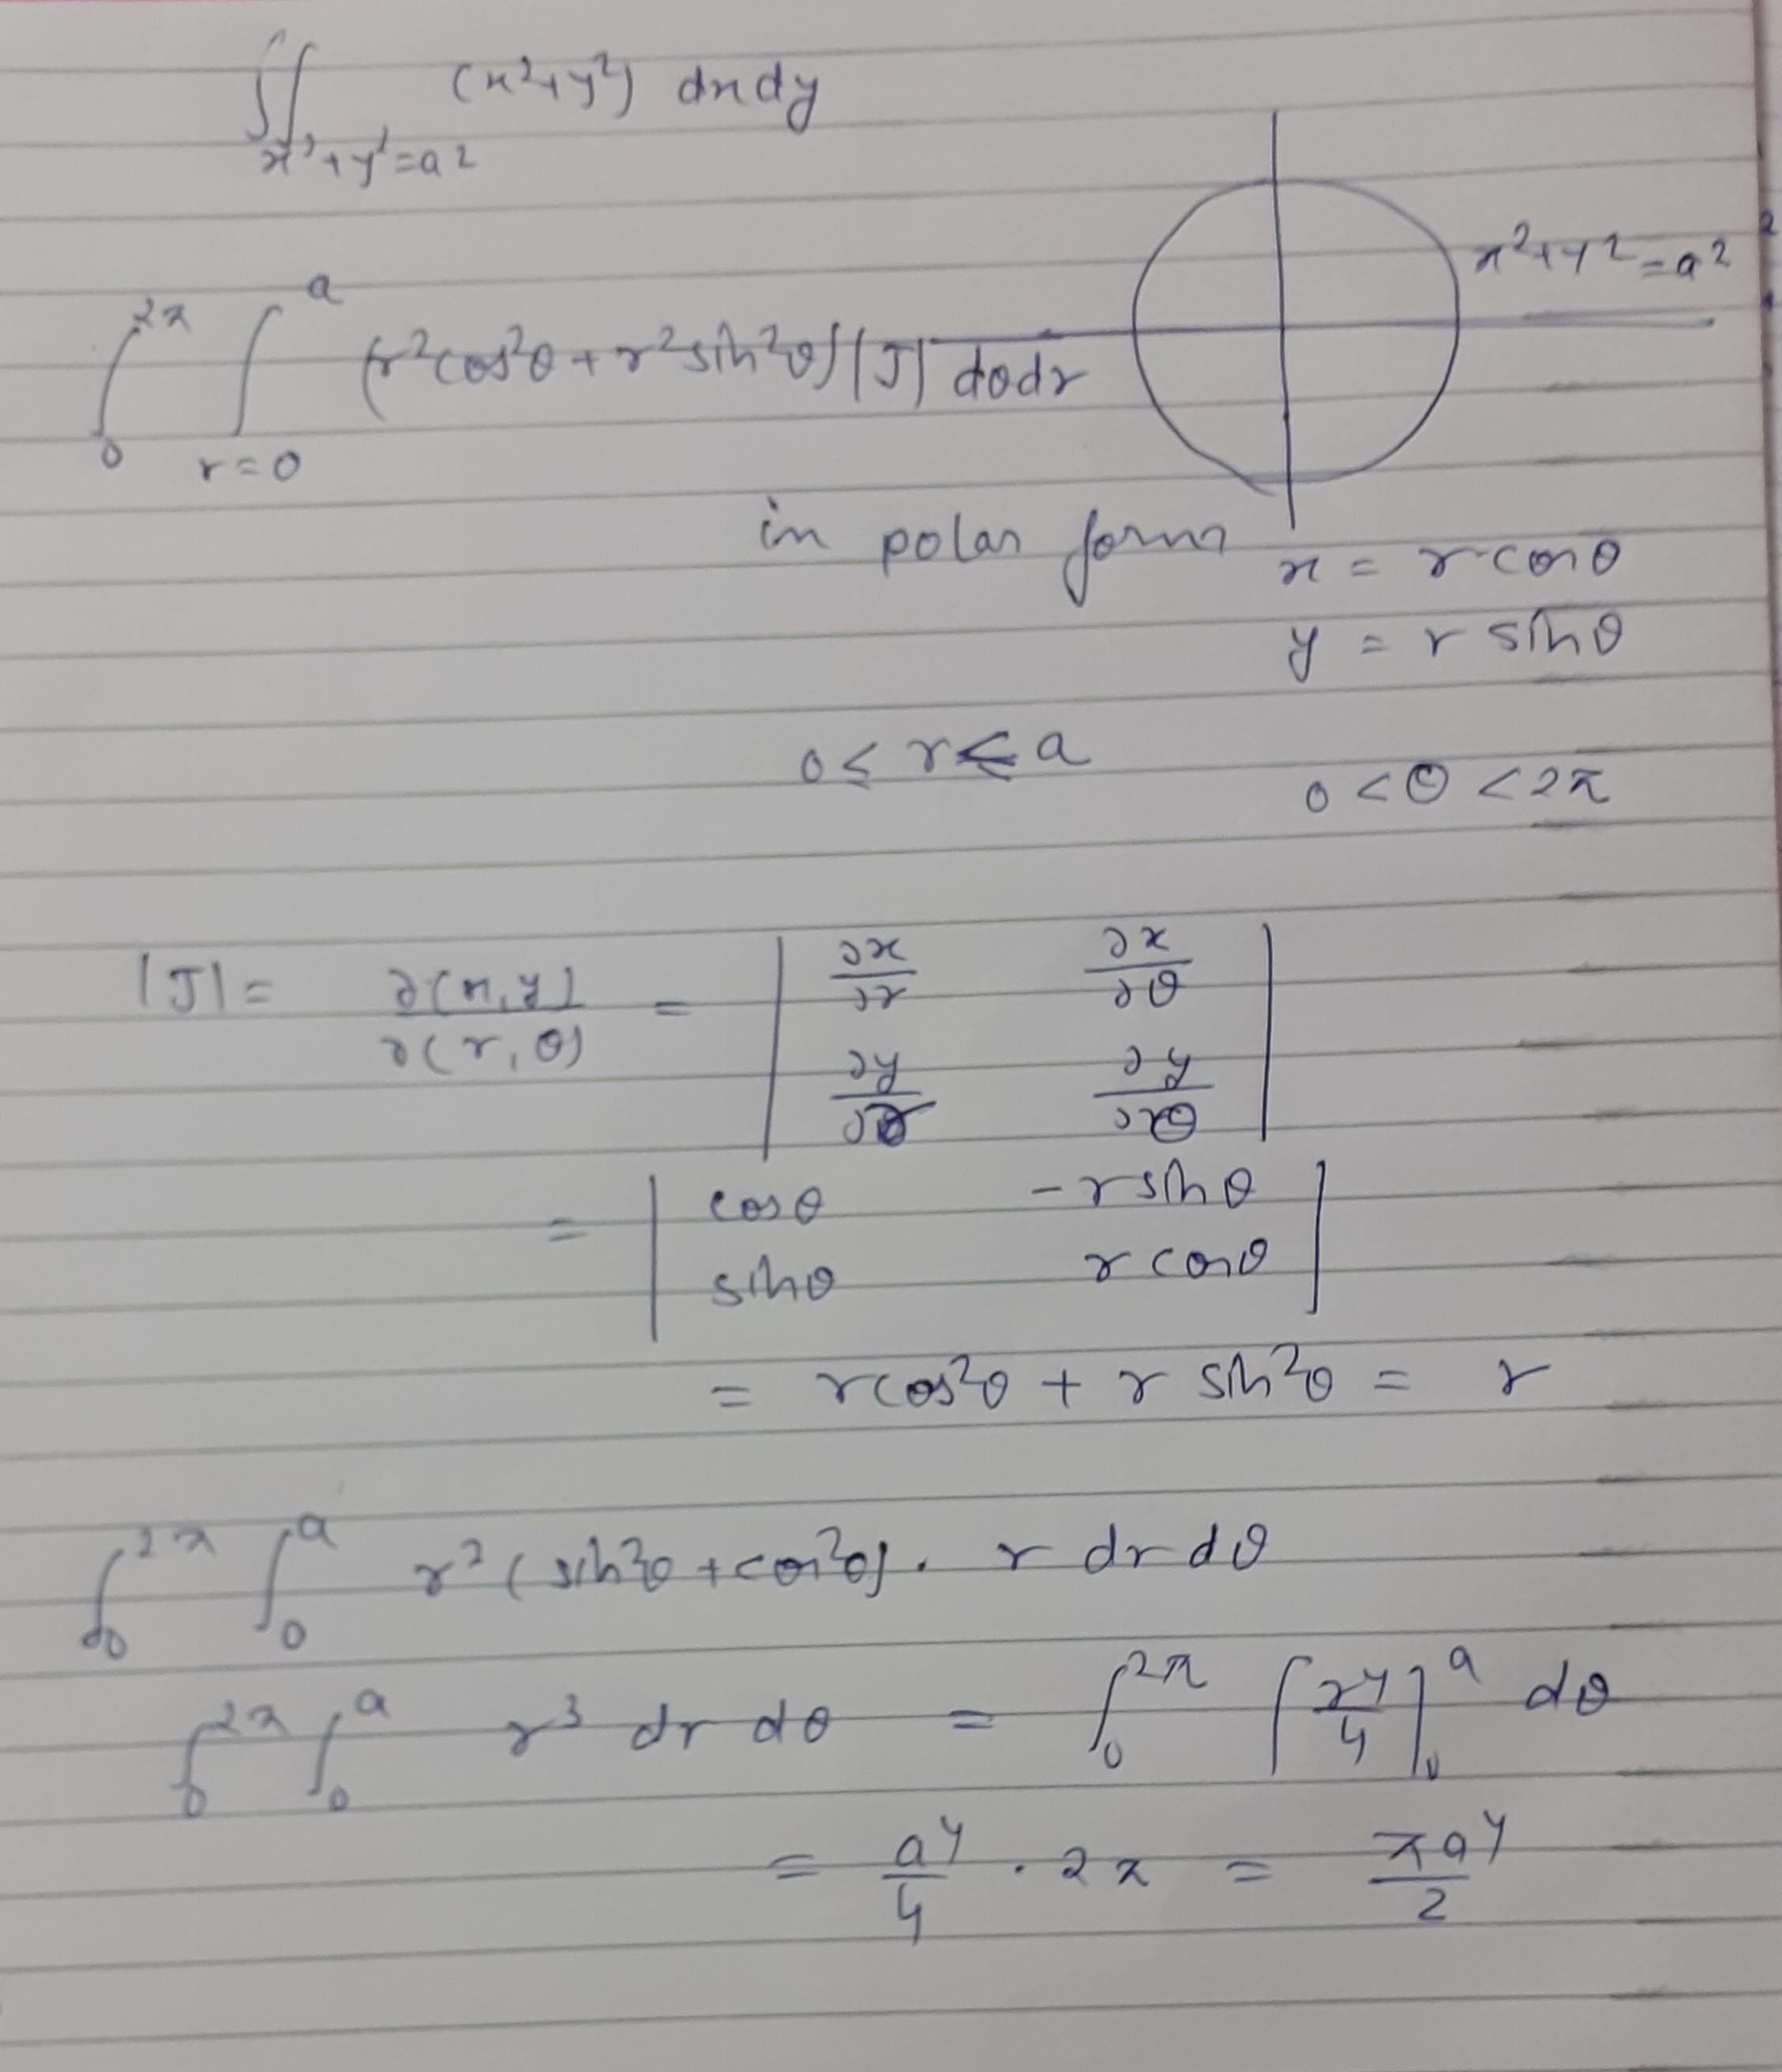 ∬ (x²+y²) dxdy
x²+y²=a²
x²+y²=a²
∫₀^2π ∫_{r=0}^a (r²cos²θ + r²sin²θ) |J| dθdr
in polar form x = r cosθ
y = r sinθ
0 ≤ r ≤ a
0 < θ < 2π
|J| = ∂(x,y)/∂(r,θ) = | ∂x/∂r ∂x/∂θ |
| ∂y/∂r ∂y/∂θ |
= | cosθ -r sinθ |
| sinθ r cosθ |
= r cos²θ + r sin²θ = r
∫₀^2π ∫₀^a r² (sin²θ + cos²θ) . r dr dθ
∫₀^2π ∫₀^a r³ dr dθ = ∫₀^2π [r⁴/4]₀^a dθ
= a⁴/4 . 2π = πa⁴/2